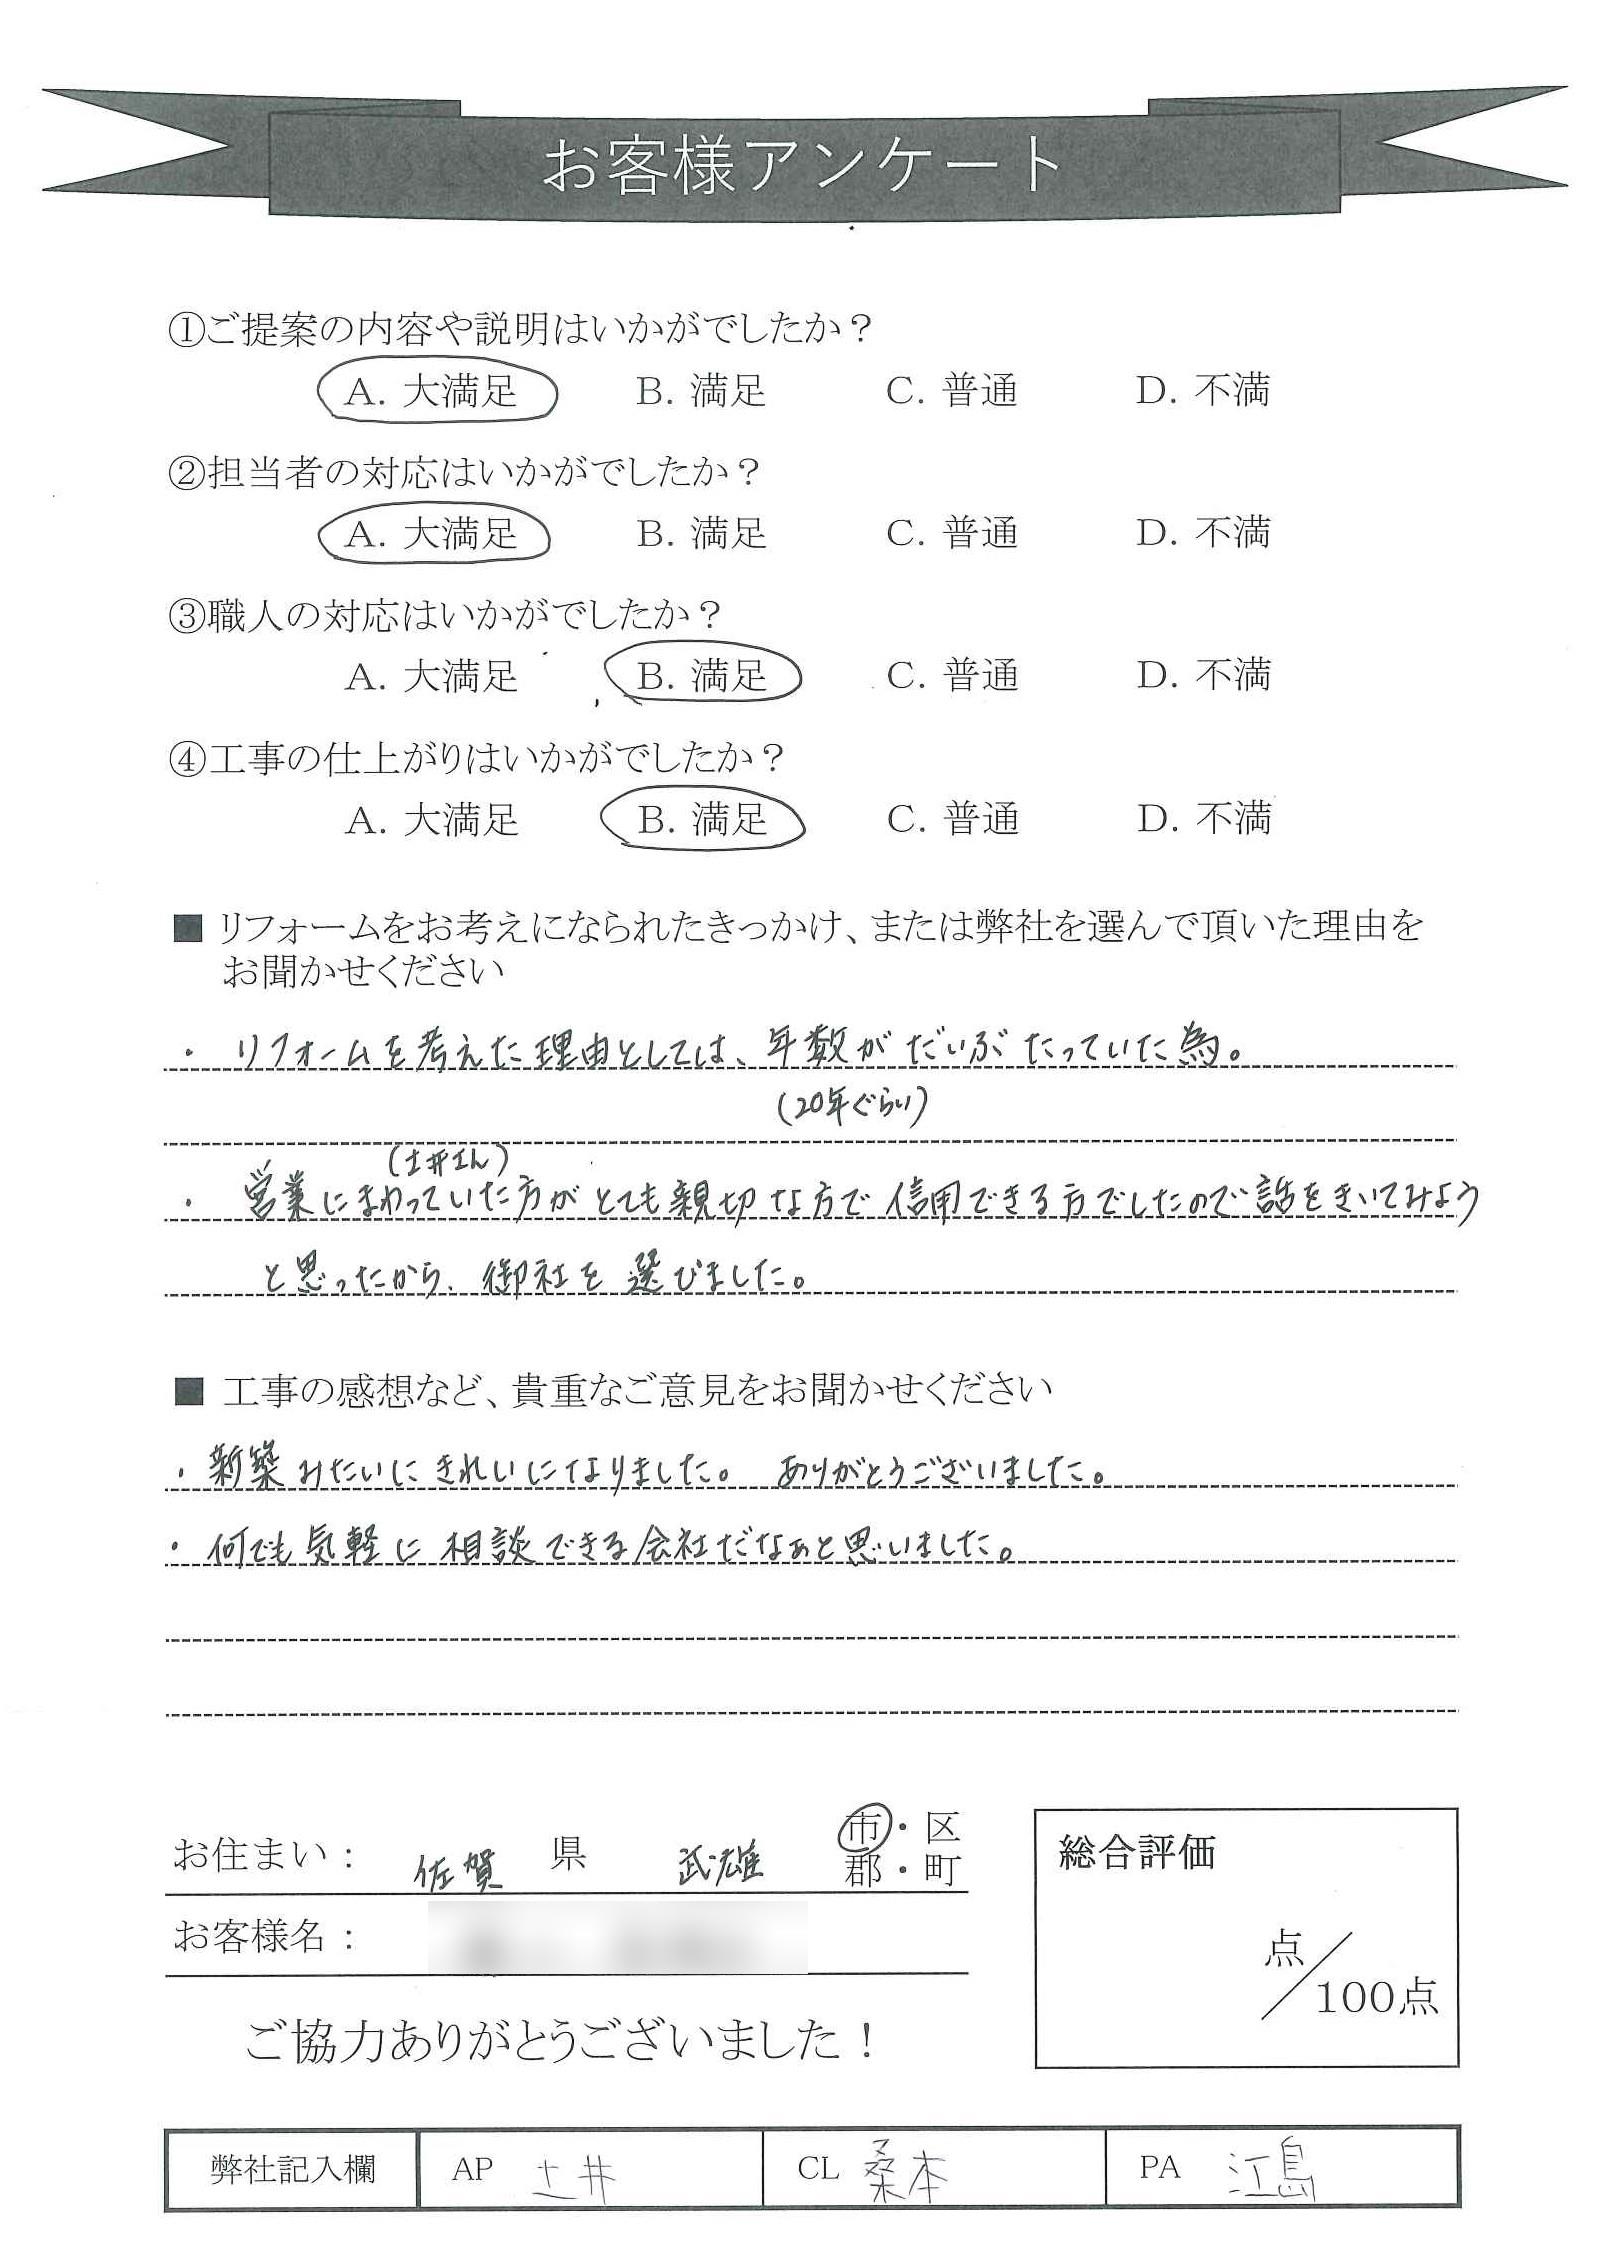 お客様アンケート
①ご提案の内容や説明はいかがでしたか？
A. 大満足 B. 満足 C. 普通 D. 不満
②担当者の対応はいかがでしたか？
A. 大満足 B. 満足 C. 普通 D. 不満
③職人の対応はいかがでしたか？
A. 大満足 B. 満足 C. 普通 D. 不満
④工事の仕上がりはいかがでしたか？
A. 大満足 B. 満足 C. 普通 D. 不満
■ リフォームをお考えになられたきっかけ、または弊社を選んで頂いた理由を
お聞かせください
・ リフォームを考えた理由としては、年数がだいぶたっていた為。
(20年ぐらい)
(土井さん)
・ 営業にまわっていた方がとても親切な方で信用できる方でしたので話をきいてみよう
と思ったから、御社を選びました。
■ 工事の感想など、貴重なご意見をお聞かせください
・ 新築みたいにきれいになりました。 ありがとうございました。
・ 何でも気軽に相談できる会社だなぁと思いました。
お住まい： 佐賀 県 武雄 市・区
郡・町
お客様名：
総合評価
点／100点
ご協力ありがとうございました！
弊社記入欄 AP 土井 CL 桑本 PA 江島